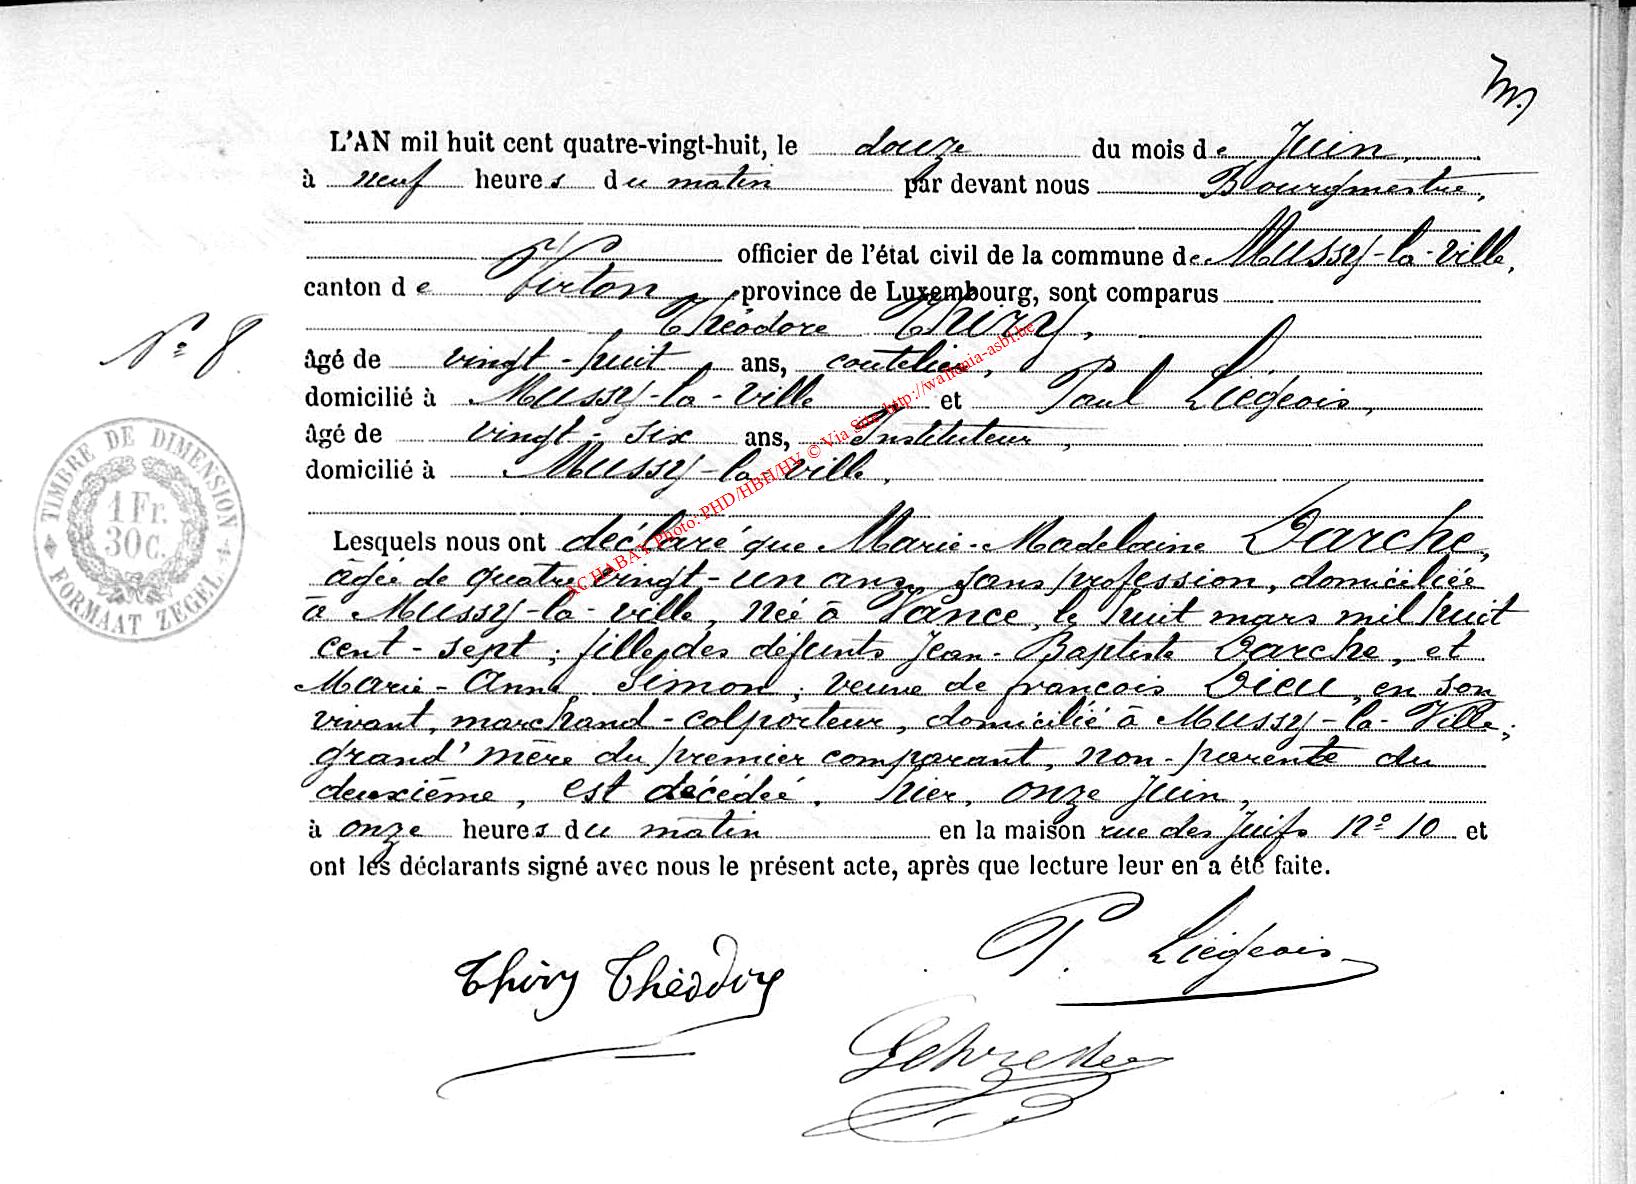 L'AN mil huit cent quatre-vingt-huit, le douze du mois de Juin,
à neuf heures du matin par devant nous Bourgmestre,
officier de l'état civil de la commune de Mussy-la-ville,
canton de Virton province de Luxembourg, sont comparus
Théodore Thiry,
N° 8
âgé de vingt-huit ans, coutelier,
domicilié à Mussy-la-ville et Paul Liégeois,
âgé de vingt-six ans, Instituteur,
domicilié à Mussy-la-ville,
TIMBRE DE DIMENSION
1 Fr.
30 C.
FORMAAT ZEGEL
Lesquels nous ont déclaré que Marie-Madelaine Darche,
âgée de quatre vingt-un ans, sans profession, domiciliée
à Mussy-la-ville, née à Vance, le huit mars mil huit
cent-sept; fille des défunts Jean-Baptiste Darche, et
Marie-Anne Simon; veuve de françois Dieu, en son
vivant, marchand-colporteur, domicilié à Mussy-la-Ville;
grand'mère du premier comparant, non-parente du
deuxième, est décédée, hier, onze Juin,
à onze heures du matin en la maison rue des Juifs N° 10 et
ont les déclarants signé avec nous le présent acte, après que lecture leur en a été faite.
P. Liégeois
Thiry Théodore
ACHABAY Photo: PHD/HBH/HV © Via Site http://wallonia-asbl.be